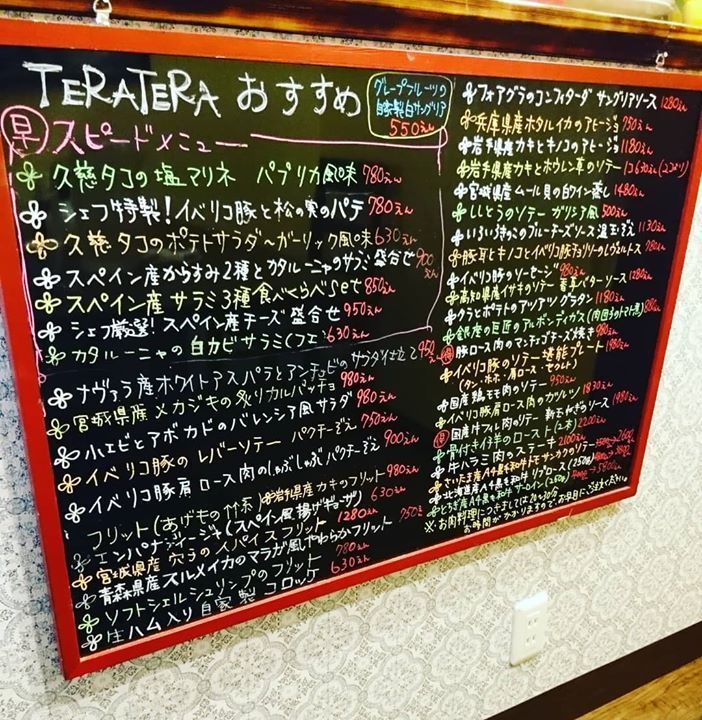 TERATERA おすすめ
グレープフルーツの
自家製白サングリア
550えん
早 スピードメニュー
久慈タコの塩マリネ パプリカ風味 780えん
シェフ特製!イベリコ豚と松の実のパテ 780えん
久慈タコのポテトサラダ~ガーリック風味 630えん
スペイン産からすみ2種とカタルーニャのサラミ盛合せ 900えん
スペイン産サラミ3種食べくらべset 850えん
シェフ厳選!スペイン産チーズ盛合せ 950えん
カタルーニャの白カビサラミ(フエ) 630えん
ナヴァラ産ホワイトアスパラとアンチョビのサラダ仕立て 950えん
宮城県産メカジキの炙りカルパッチョ 980えん
小エビとアボカドのバレンシア風サラダ 980えん
イベリコ豚のレバーソテー パクチーぞえ 750えん
イベリコ豚肩ロース肉のしゃぶしゃぶパクチーぞえ 900えん
フリット(あげもの竹系)
岩手県産カキのフリット 980えん
エンパナディージャ(スペイン風揚げギョーザ) 630えん
宮城県産 穴子の1パイスフリット 1280えん
青森県産スルメイカのマラガ風やわらかフリット 750えん
ソフトシェルシュリンプのフリット 780えん
生ハム入り自家製コロッケ 630えん
フォアグラのコンフィターダ サングリアソース 1280えん
兵庫県産ホタルイカのアヒージョ 750えん
岩手県産カキとキノコのアヒージョ 1180えん
岩手県産カキとホウレン草のソテー 1コ630えん(2コより)
宮城県産ムール貝の白ワイン蒸し 1480えん
ししとうのソテー ガリシア風 500えん
いろいろきのこのブルーチーズソース 温玉ぞえ 1130えん
豚耳とキノコとイベリコ豚チョリソのレヴエルトス 780えん
イベリコ豚のソーセージ 980えん
高知県産イサキのソテー 黄ニラバターソース 1280えん
タラとポテトのアツアツグラタン 1180えん
銀座の巨匠のアルボンディガス(肉団子のトマト煮) 880えん
豚ロース肉のマンチェゴチーズ焼き 980えん
得 イベリコ豚のソテー堪能プレート 1980えん
(タン・ホホ・肩ロース・セクレト)
国産鶏モモ肉のソテー 950えん
イベリコ豚肩ロース肉のガルソン 1830えん
得 国産牛フィレ肉のソテー 新玉ねぎのソース 1980えん
骨付き仔羊のロースト(2本) 2200えん
牛ハラミ肉のステーキ 2100えん
さいたま産A4黒毛和牛トモサンカクのソテー 2600えん
北海道産A4黒毛和牛リブロース(250g)
とちぎ産A4黒毛和牛サーロイン(250g) 5800えん
※お肉料理につきましては20~30分
お時間がかかりますので、お早目にご注文ください。